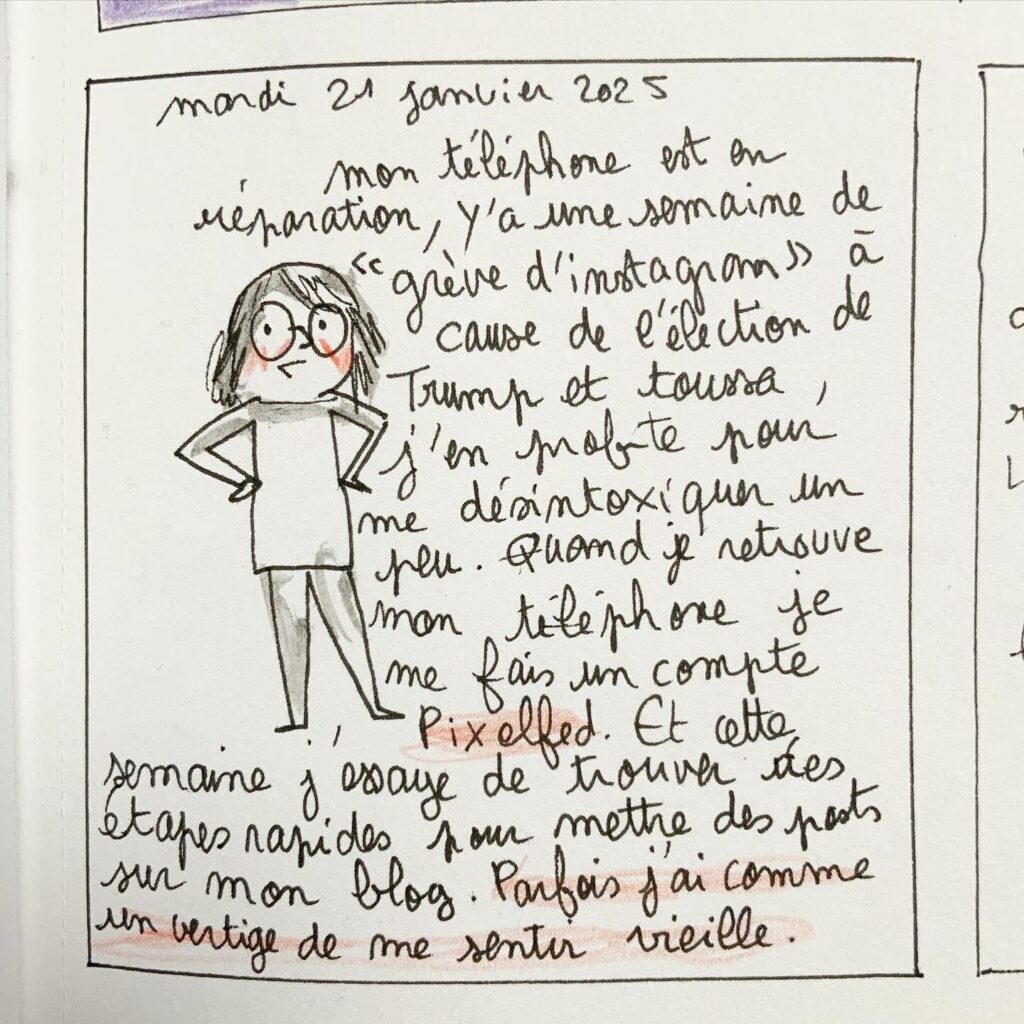 mardi 21 janvier 2025
mon téléphone est en
réparation, y'a une semaine de
"grève d'instagram" à
cause de l'élection de
Trump et toussa,
j'en profite pour
me désintoxiquer un
peu. Quand je retrouve
mon téléphone je
me fais un compte
Pixelfed. Et cette
semaine j'essaye de trouver des
étapes rapides pour mettre des posts
sur mon blog. Parfois j'ai comme
un vertige de me sentir vieille.